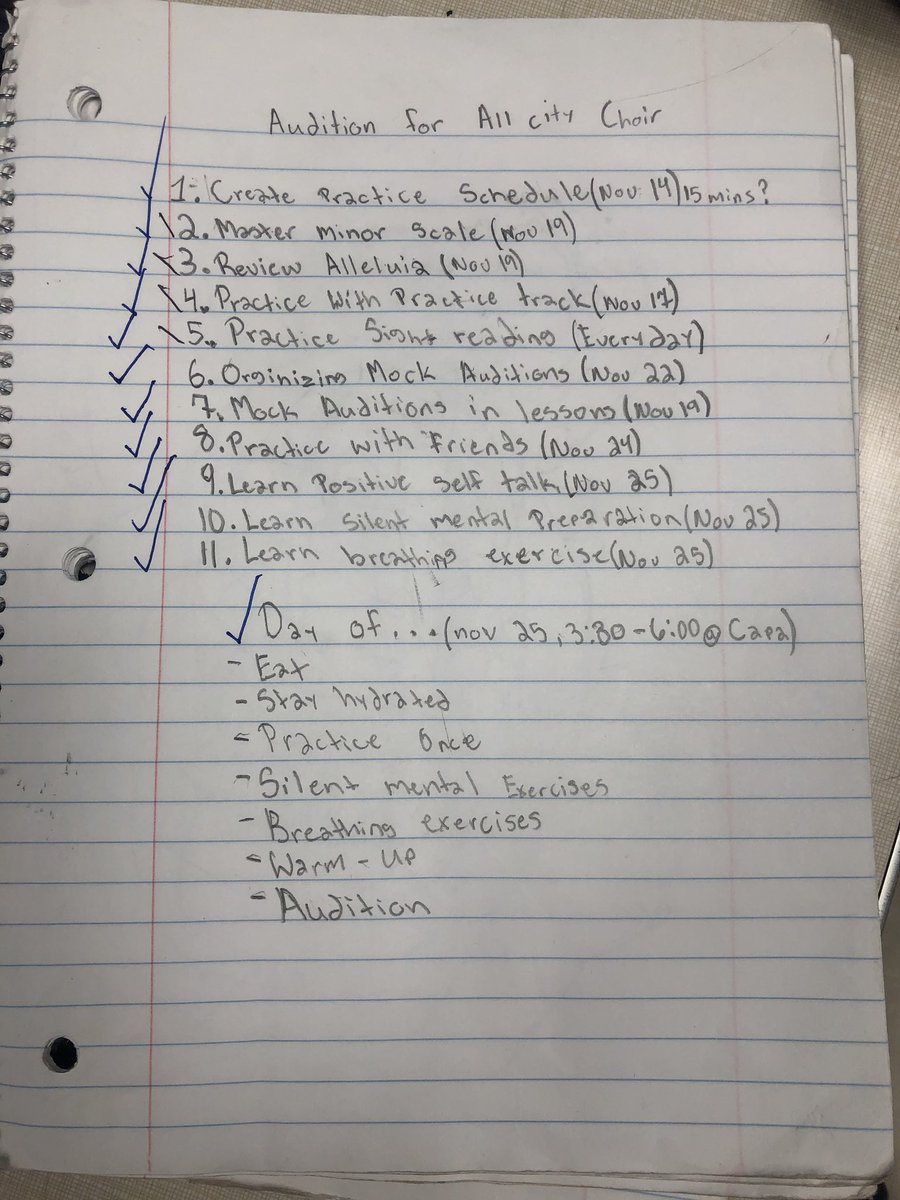 Audition for All city Choir
1. Create Practice Schedule (Nov 14) 15 mins?
2. Master minor scale (Nov 19)
3. Review Alleluia (Nov 19)
4. Practice With Practice track (Nov 17)
5. Practice Sight reading (Everyday)
6. Orginizing Mock Auditions (Nov 22)
7. Mock Auditions in lessons (Nov 19)
8. Practice with Friends (Nov 24)
9. Learn Positive self talk (Nov 25)
10. Learn silent mental Preparation (Nov 25)
11. Learn breathing exercise (Nov 25)
Day of... (nov 25, 3:30-6:00 @ Capa)
- Eat
- Stay hydrated
- Practice Once
- Silent mental Exercises
- Breathing exercises
- Warm-up
- Audition